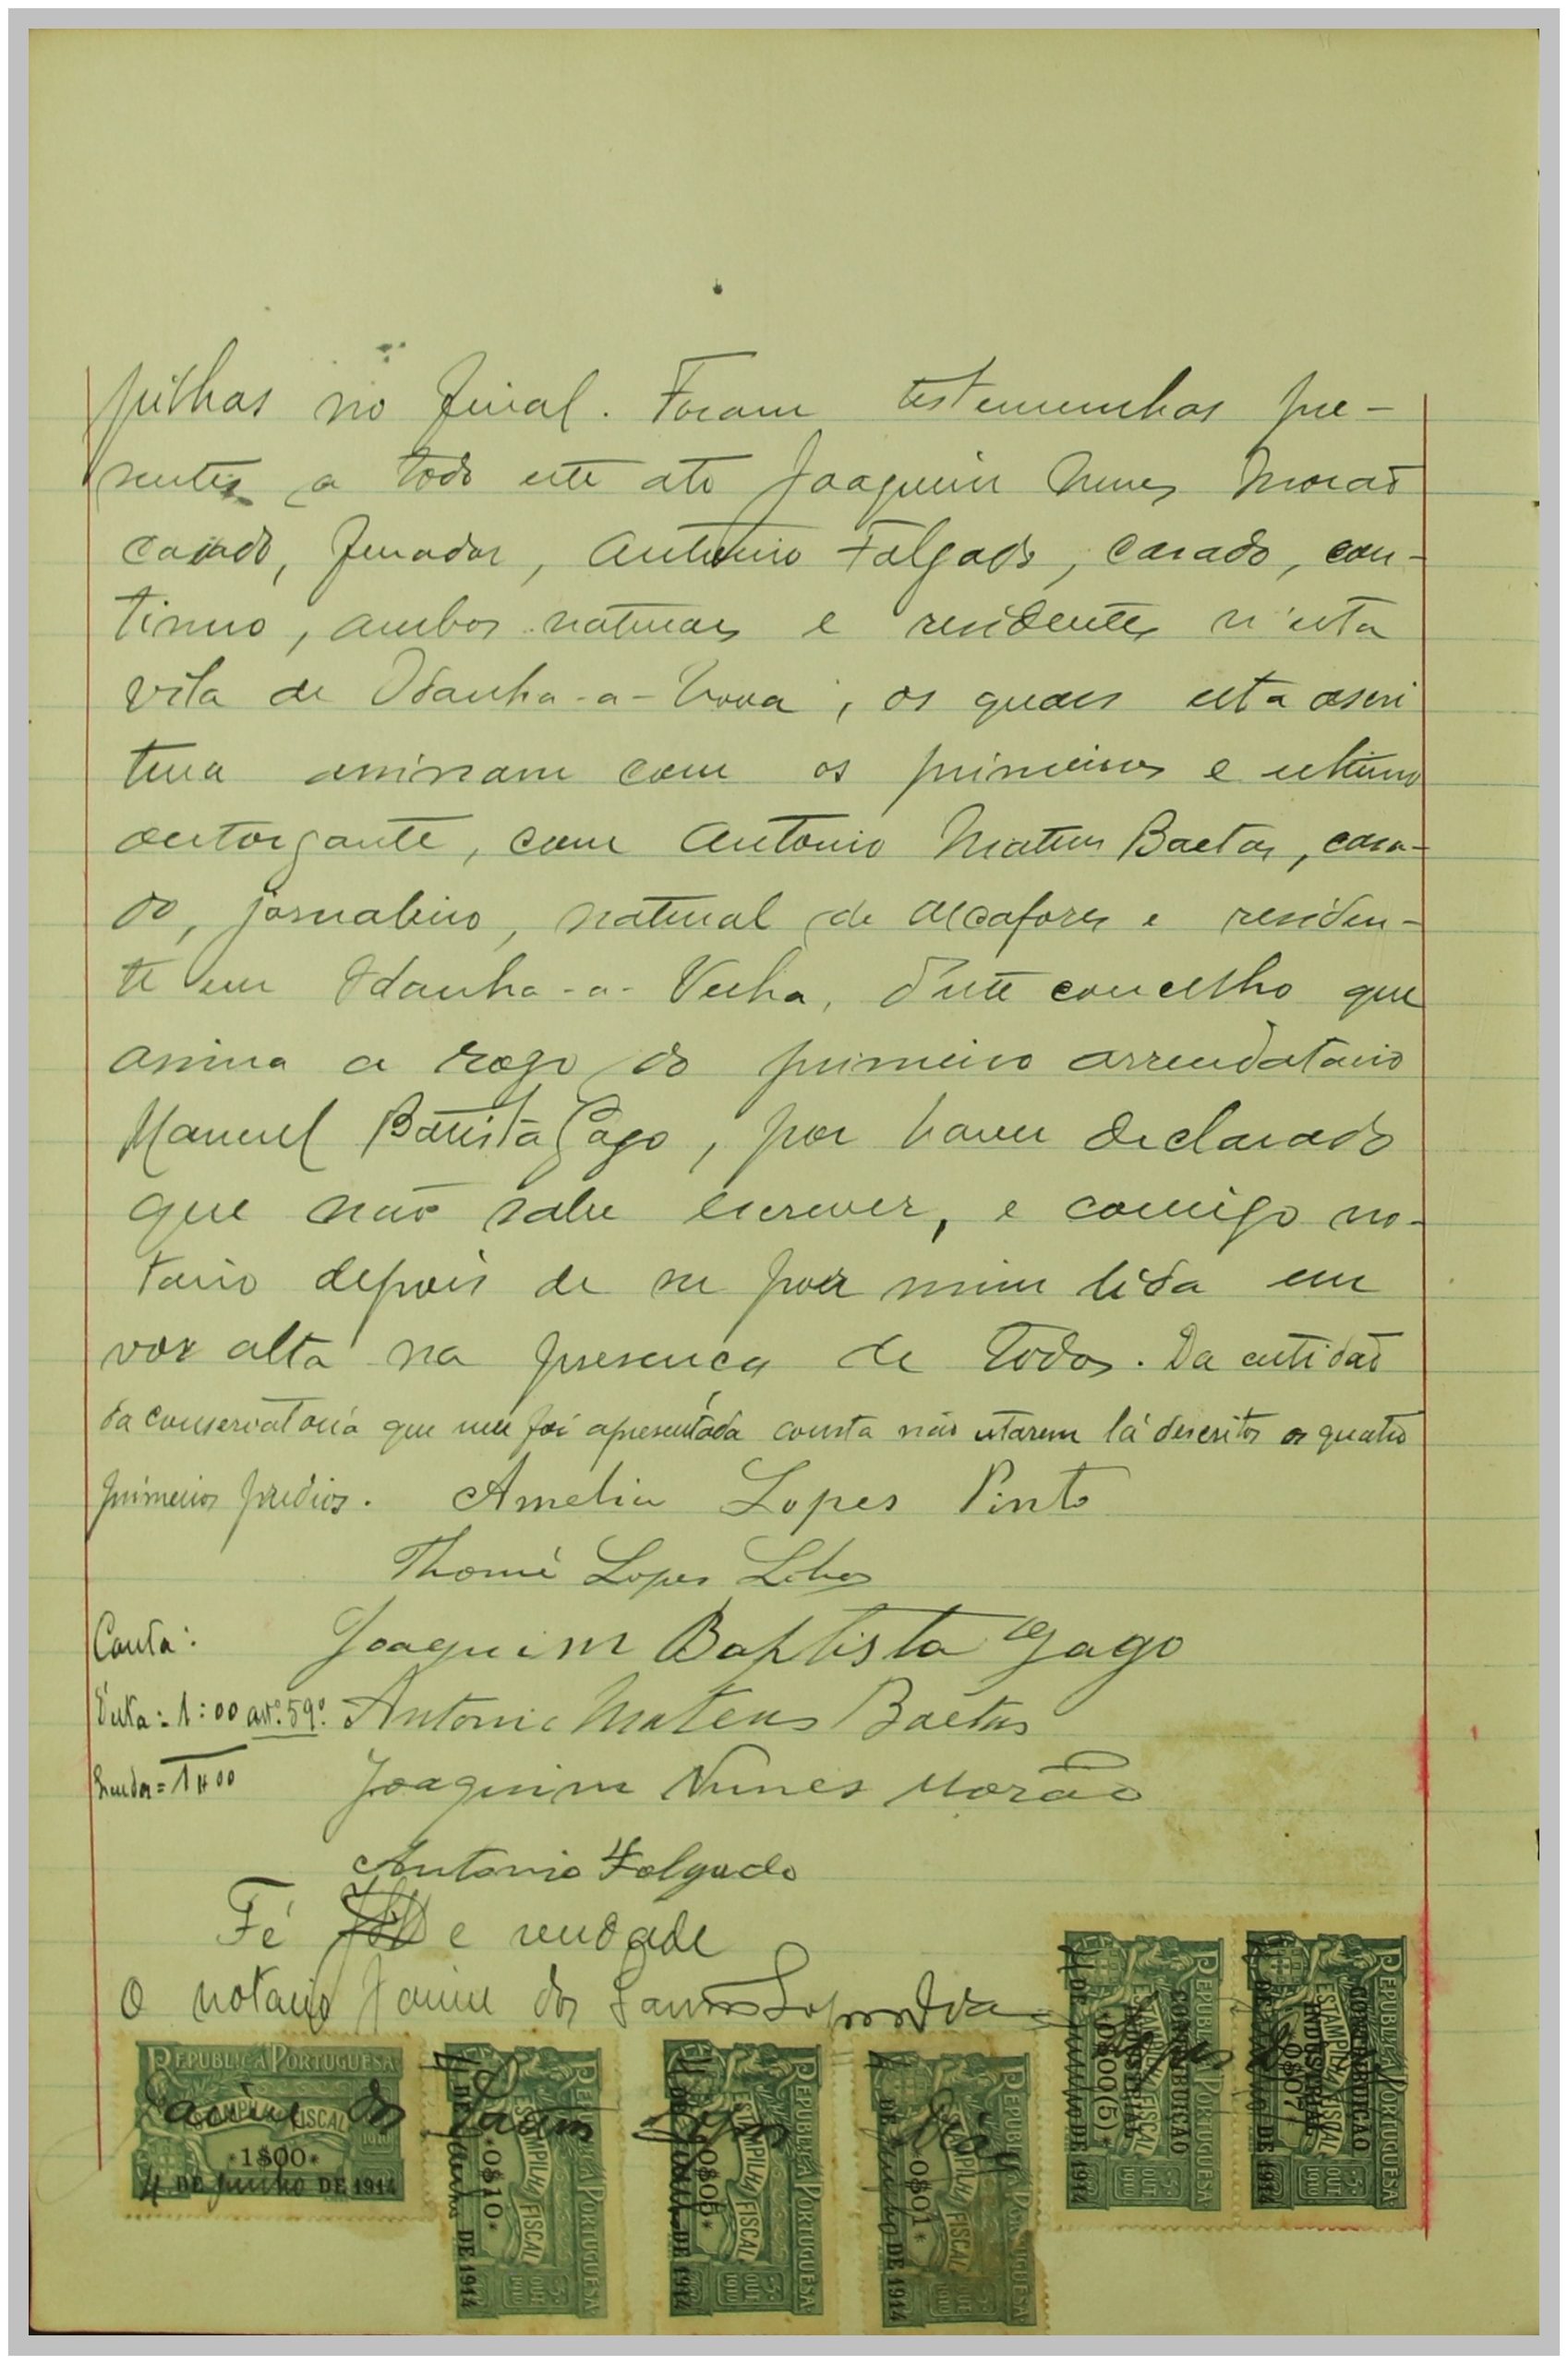 pilhas no final. Foram testemunhas pre-
sentes a todo este ato Joaquim Nunes Morão
casado, ferrador, Antonio Folgado, casado, con-
tinuo, ambos naturaes e residentes n'esta
vila de Idanha-a-Nova, os quaes esta escri
tura assinam com os primeiros e ultimo
outorgante, com Antonio Mateus Baetas, casa-
do, jornaleiro, natural de Alcafozes e residen-
te em Idanha-a-Velha, d'este concelho que
assina a rogo do primeiro arrendatario
Manuel Batista Gago, por haver declarado
que não sabe escrever, e comigo no-
tario depois de ser por mim lida em
voz alta na presença de todos. Da certidão
da conservatoria que me foi apresentada consta não estarem lá descritos os quatro
primeiros predios. Amelia Lopes Pinto
Thomé Lopes Lobo
Conta: Joaquim Baptista Gago
1:00 art.º 59º Antonio Mateus Baetas
1$00 Joaquim Nunes Morão
Antonio Folgado
Fé e verdade
O notario Jaime dos Santos Lopes Dias
REPUBLICA PORTUGUESA
ESTAMPILHA FISCAL
*1$00*
4 DE Junho DE 1914
Jaime dos Santos Lopes Dias
REPUBLICA PORTUGUESA
ESTAMPILHA FISCAL
*0$10*
4 DE Junho DE 1914
REPUBLICA PORTUGUESA
ESTAMPILHA FISCAL
*0$05*
4 DE Junho DE 1914
REPUBLICA PORTUGUESA
ESTAMPILHA FISCAL
*0$01*
4 DE Junho DE 1914
REPUBLICA PORTUGUESA
ESTAMPILHA FISCAL
CONTRIBUIÇÃO
INDUSTRIAL
*0$00(5)*
4 DE Junho DE 1914
REPUBLICA PORTUGUESA
ESTAMPILHA FISCAL
CONTRIBUIÇÃO
INDUSTRIAL
*0$07*
4 DE Junho DE 1914